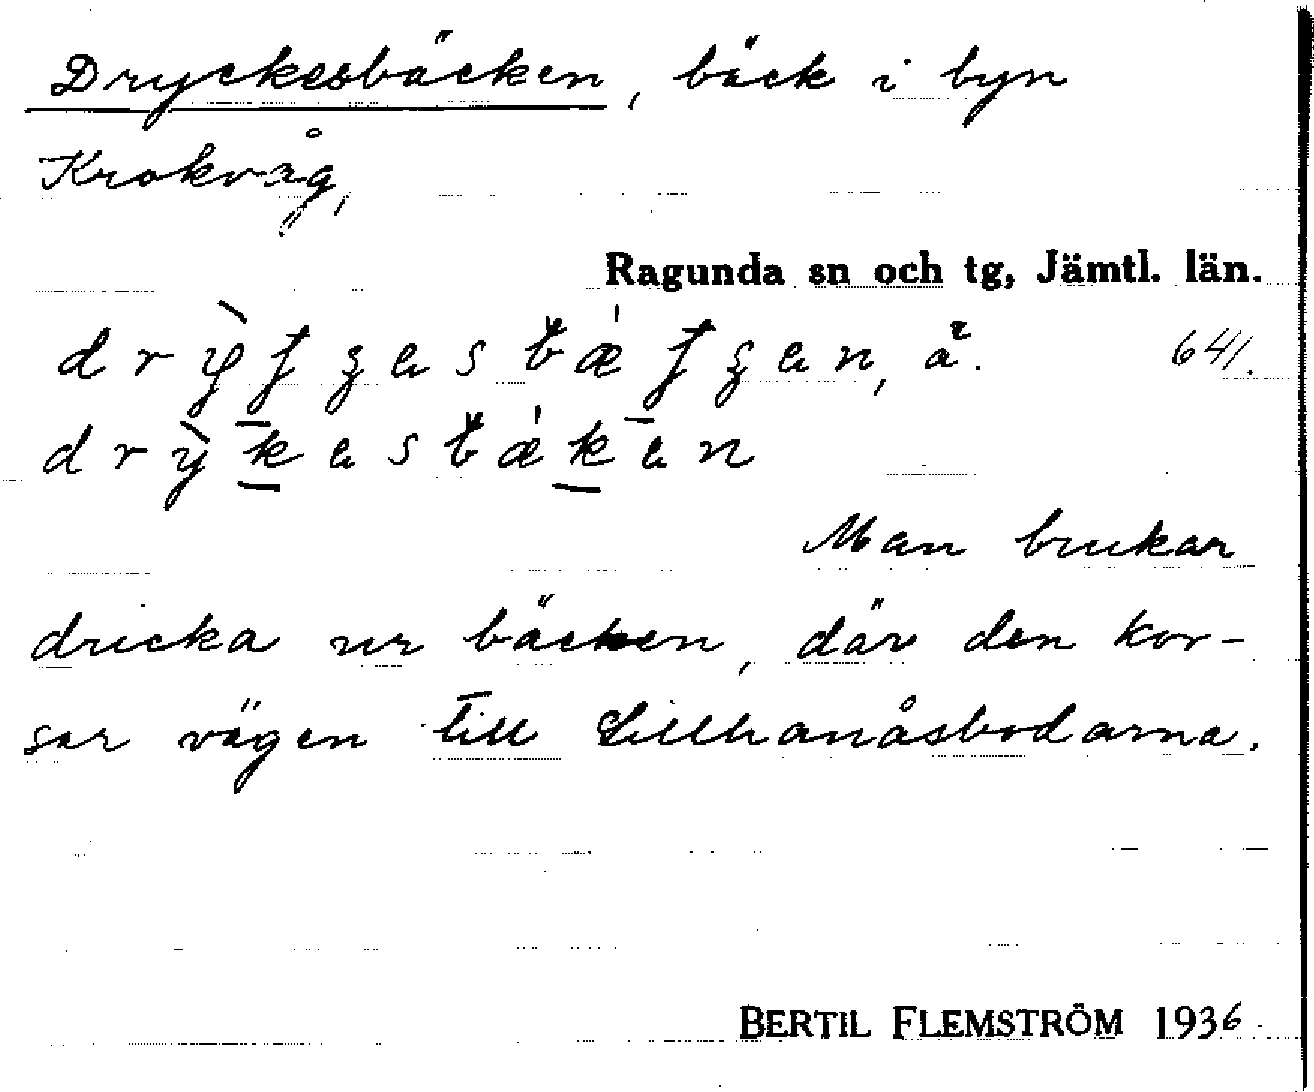 Dryckesbäcken, bäck i byn
Krokvåg,
Ragunda sn och tg, Jämtl. län.
641.
Man brukar
dricka ur bäcken, där den kor-
sar vägen till Lillhanåsbodarna.
BERTIL FLEMSTRÖM 1936